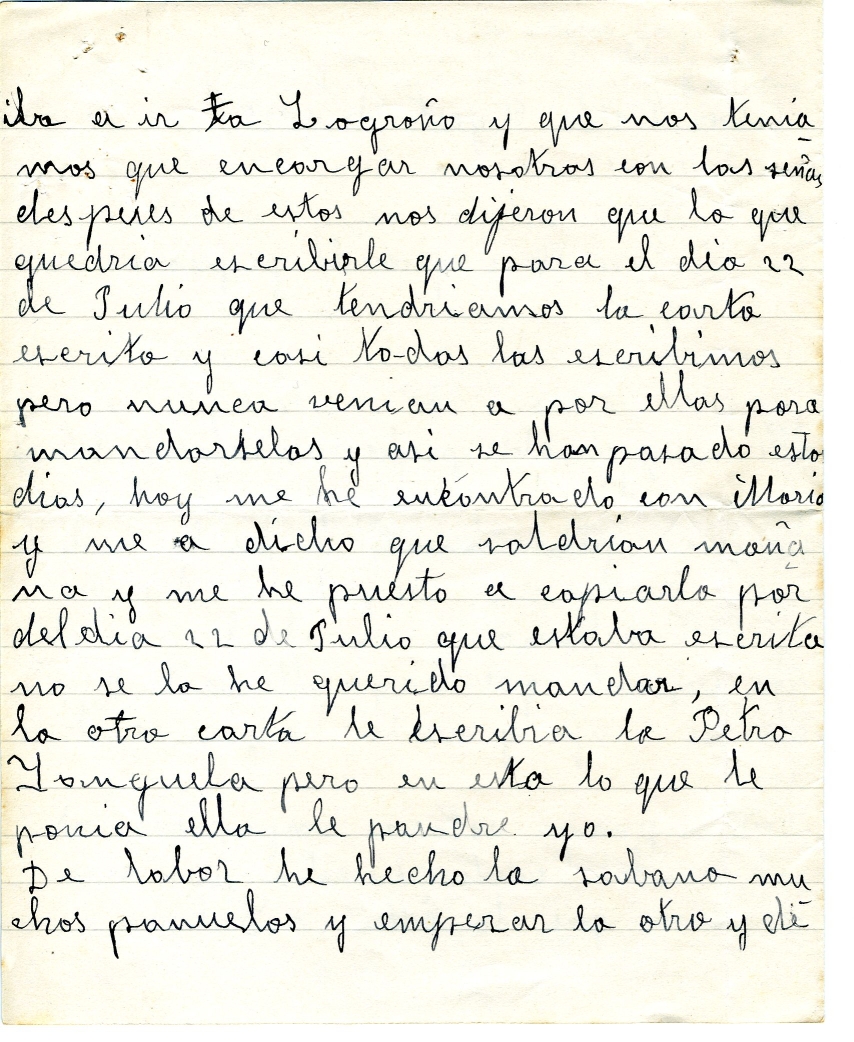 iba a ir a Logroño y que nos tenia
mos que encargar nosotras con las señas
despues de estos nos dijeron que lo que
quedria escribirle que para el dia 22
de Julio que tendriamos la carta
escrita y casi to-das las escribimos
pero nunca venian a por ellas para
mandarselas y asi se han pasado estos
dias, hoy me he encontrado con Maria
y me a dicho que saldrian maña
na y me he puesto a copiarla por
del dia 22 de Julio que estaba escrita
no se la he querido mandar, en
la otra carta le escribia la Petra
Yanguela pero en esta lo que le
ponia ella le pondre yo.
De labor he hecho la sabana mu
chos panuelos y empezar la otra y de